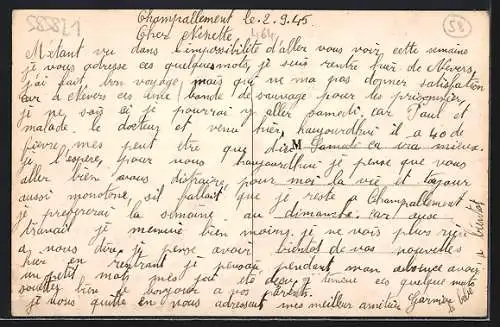 585821
58
464
Champallement le. 2. 9. 45
Cher Ninette.
M'étant vu dans l'impossibilité d'aller vous voir cette semaine
je vous adresse ces quelques mots, je suis rentré hier de Nevers,
j'ai fait bon voyage, mais qui ne ma pas donner satisfaction
car a Nevers ces une bande de sauvage pour les prisonnier,
je ne sais si je pourrai y aller samedi, car Paul et
malade. le docteur et venu hier, haujourdhui il a 40 de
fièvre mes peut etre que d'ici M Samedi ca ira mieux.
je l'espère, pour nous haujourdhui je pense que vous
aller bien vous distraire, pour moi la vie et toujour
aussi monotone, sil fallait que je reste a Champallement
je prefererai la semaine au dimanche. car avec
travail je mennuie bien moins. je ne vois plus rien
a vous dire, je pense avoir bientot de vos nouvelles
hier en rentrant je pensais pendant mon absence avoir
un petit mot mes jai ete decu, je termine ces quelque mots
souettez bien le bonjour a vos parents.
je vous quitte en vous adressant mes meilleur amitiés Garnier
a bientot